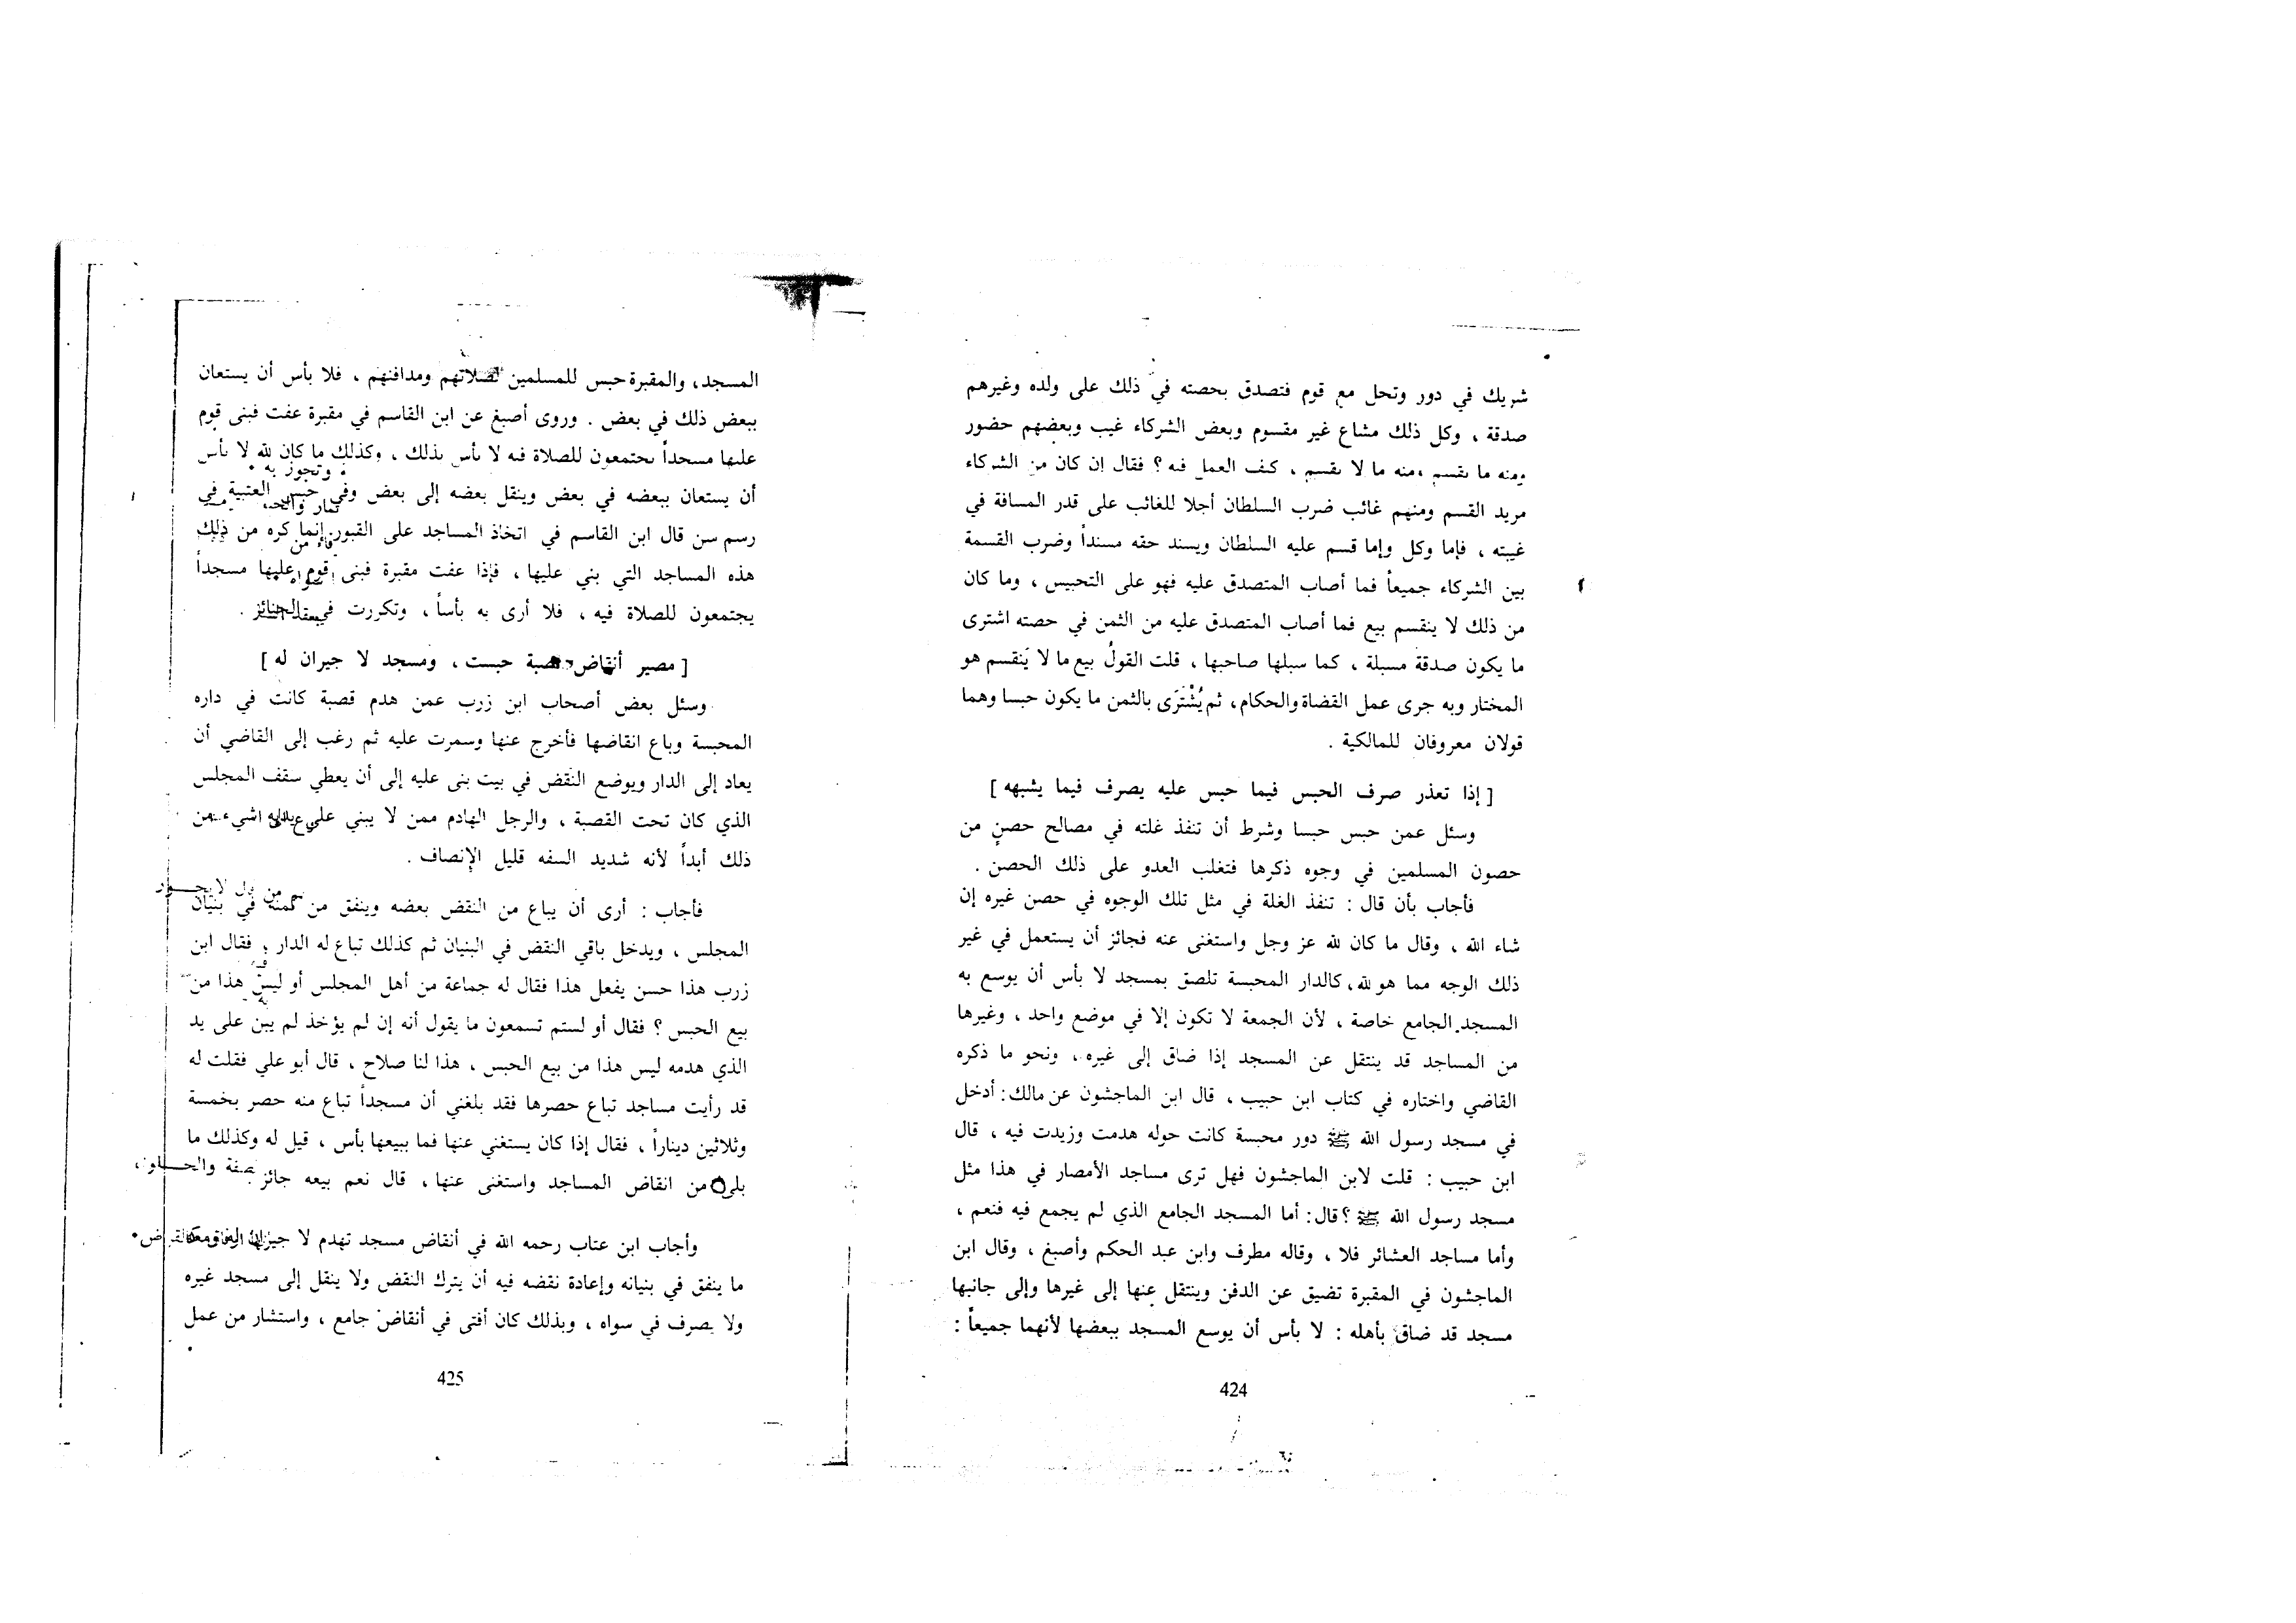 شريك في دور وتحل مع قوم فتصدق بحصته في ذلك على ولده وغيرهم
صدقة ، وكل ذلك مشاع غير مقسوم وبعض الشركاء غيب وبعضهم حضور
ومنه ما يقسم ومنه ما لا يقسم ، كيف العمل فيه ؟ فقال إن كان من الشركاء
مريد القسم ومنهم غائب ضرب السلطان أجلا للغائب على قدر المسافة في
غيبته ، فإما وكل وإما قسم عليه السلطان ويسند حقه مسنداً وضرب القسمة
بين الشركاء جميعاً فما أصاب المتصدق عليه فهو على التحبيس ، وما كان
من ذلك لا ينقسم بيع فما أصاب المتصدق عليه من الثمن في حصته اشترى
ما يكون صدقة مسبلة ، كما سبلها صاحبها ، قلت القولُ بيع ما لا يَنقسم هو
المختار وبه جرى عمل القضاة والحكام ، ثم يُشْتَرَى بالثمن ما يكون حبسا وهما
قولان معروفان للمالكية .
[ إذا تعذر صرف الحبس فيما حبس عليه يصرف فيما يشبهه ]
وسئل عمن حبس حبسا وشرط أن تنفذ غلته في مصالح حصنٍ من
حصون المسلمين في وجوه ذكرها فتغلب العدو على ذلك الحصن .
فأجاب بأن قال : تنفذ الغلة في مثل تلك الوجوه في حصن غيره إن
شاء الله ، وقال ما كان لله عز وجل واستغنى عنه فجائز أن يستعمل في غير
ذلك الوجه مما هو لله ، كالدار المحبسة تلصق بمسجد لا بأس أن يوسع به
المسجد الجامع خاصة ، لأن الجمعة لا تكون إلا في موضع واحد ، وغيرها
من المساجد قد ينتقل عن المسجد إذا ضاق إلى غيره ، ونحو ما ذكره
القاضي واختاره في كتاب ابن حبيب ، قال ابن الماجشون عن مالك : أدخل
في مسجد رسول الله ﷺ دور محبسة كانت حوله هدمت وزيدت فيه ، قال
ابن حبيب : قلت لابن الماجشون فهل ترى مساجد الأمصار في هذا مثل
مسجد رسول الله ﷺ ؟ قال : أما المسجد الجامع الذي لم يجمع فيه فنعم ،
وأما مساجد العشائر فلا ، وقاله مطرف وابن عبد الحكم وأصبغ ، وقال ابن
الماجشون في المقبرة تضيق عن الدفن وينتقل عنها إلى غيرها وإلى جانبها
مسجد قد ضاق بأهله : لا بأس أن يوسع المسجد ببعضها لأنهما جميعاً :
424
المسجد ، والمقبرة حبس للمسلمين لصلاتهم ومدافنهم ، فلا بأس أن يستعان
ببعض ذلك في بعض . وروى أصبغ عن ابن القاسم في مقبرة عفت فبنى قوم
عليها مسجداً يجتمعون للصلاة فيه لا بأس بذلك ، وكذلك ما كان لله لا بأس
أن يستعان ببعضه في بعض وينقل بعضه إلى بعض وفي حبس العتبية في
رسم سن قال ابن القاسم في اتخاذ المساجد على القبور إنما كره من ذلك
هذه المساجد التي بني عليها ، فإذا عفت مقبرة فبنى قوم عليها مسجداً
يجتمعون للصلاة فيه ، فلا أرى به بأساً ، وتكررت في الجنائز .
[ مصير أنقاض قصبة حبست ، ومسجد لا جيران له ]
وسئل بعض أصحاب ابن زرب عمن هدم قصبة كانت في داره
المحبسة وباع انقاضها فأخرج عنها وسمرت عليه ثم رغب إلى القاضي أن
يعاد إلى الدار ويوضع النقض في بيت بنى عليه إلى أن يعطي سقف المجلس
الذي كان تحت القصبة ، والرجل الهادم ممن لا يبني على يديه شيء من
ذلك أبداً لأنه شديد السفه قليل الإنصاف .
فأجاب : أرى أن يباع من النقض بعضه وينفق من ثمنه في بنيان
المجلس ، ويدخل باقي النقض في البنيان ثم كذلك تباع له الدار ، فقال ابن
زرب هذا حسن يفعل هذا فقال له جماعة من أهل المجلس أو ليس هذا من
بيع الحبس ؟ فقال أو لستم تسمعون ما يقول أنه إن لم يؤخذ لم يبن على يد
الذي هدمه ليس هذا من بيع الحبس ، هذا لنا صلاح ، قال أبو علي فقلت له
قد رأيت مساجد تباع حصرها فقد بلغني أن مسجداً تباع منه حصر بخمسة
وثلاثين ديناراً ، فقال إذا كان يستغني عنها فما ببيعها بأس ، قيل له وكذلك ما
بلي من انقاض المساجد واستغنى عنها ، قال نعم بيعه جائز
وأجاب ابن عتاب رحمه الله في أنقاض مسجد تهدم لا جيران له
ما ينفق في بنيانه وإعادة نقضه فيه أن يترك النقض ولا ينقل إلى مسجد غيره
ولا يصرف في سواه ، وبذلك كان أفتى في أنقاض جامع ، واستشار من عمل
425